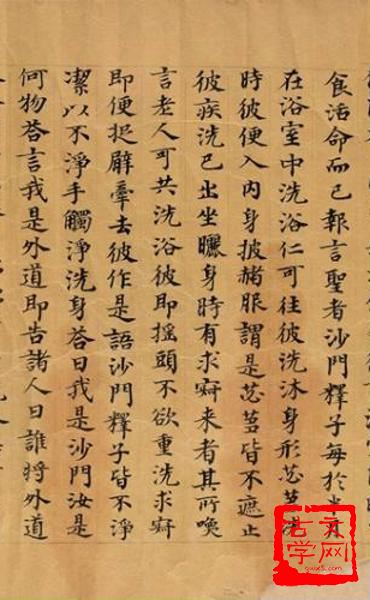 食活命而已報言聖者沙門釋子每於半月
在浴室中洗浴仁可往彼洗沐身形苾芻
時彼便入内身披赭服謂是苾芻皆不遮止
彼疾洗已出坐曬身時有求寂来者其所喚
言老人可共洗浴彼即摇頭不欲重洗求寂
即便捉臂牽去彼作是語沙門釋子皆不淨
潔以不淨手觸淨洗身荅曰我是沙門汝是
何物荅言我是外道即告諸人曰誰將外道
古文学网